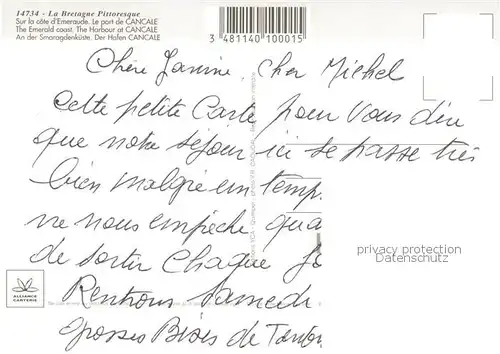 14734 - La Bretagne Pittoresque
Sur la côte d'Emeraude. Le port de CANCALE
The Emerald coast. The Harbour at CANCALE
An der Smaragdenküste. Der Hafen CANCALE
3 481140 100015
Chère Janine, cher Michel
Cette petite Carte pour vous dire
que notre séjour ici se passe très
bien malgré un temp
ne nous empêche qua
de sortir chaque Jo
Rentrons Samedi
Grosses Bises de
privacy protection
Datenschutz
ALLIANCE
CARTERIE